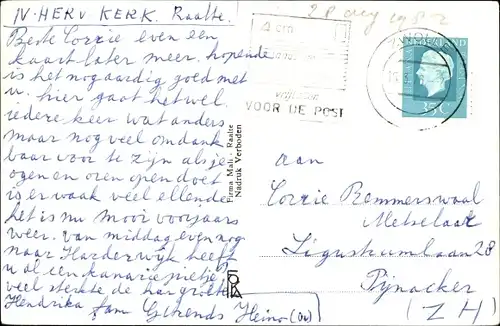 N. HERV KERK. Raalte.
Beste Corrie even een
kaart later meer, hopende
is het nog aardig goed met
u. hier gaat het wel.
iedere keer wat anders
maar nog veel om dank
baar voor te zijn als je
ogen en oren open doet
is er waak veel ellende
het is nu mooi voorjaars
weer. van middag even nog
naar Harderwijk heeft
u al een kanarie pietje
veel sterkte de hartgroete
Hendrika fam Heino (Ov)
Firma Mali - Raalte
Nadruk Verboden
VOOR DE POST
NEDERLAND
35c
aan
Corrie Remmerswaal
Metselaar
Ligusterlaan 28
Pijnacker
(ZH)